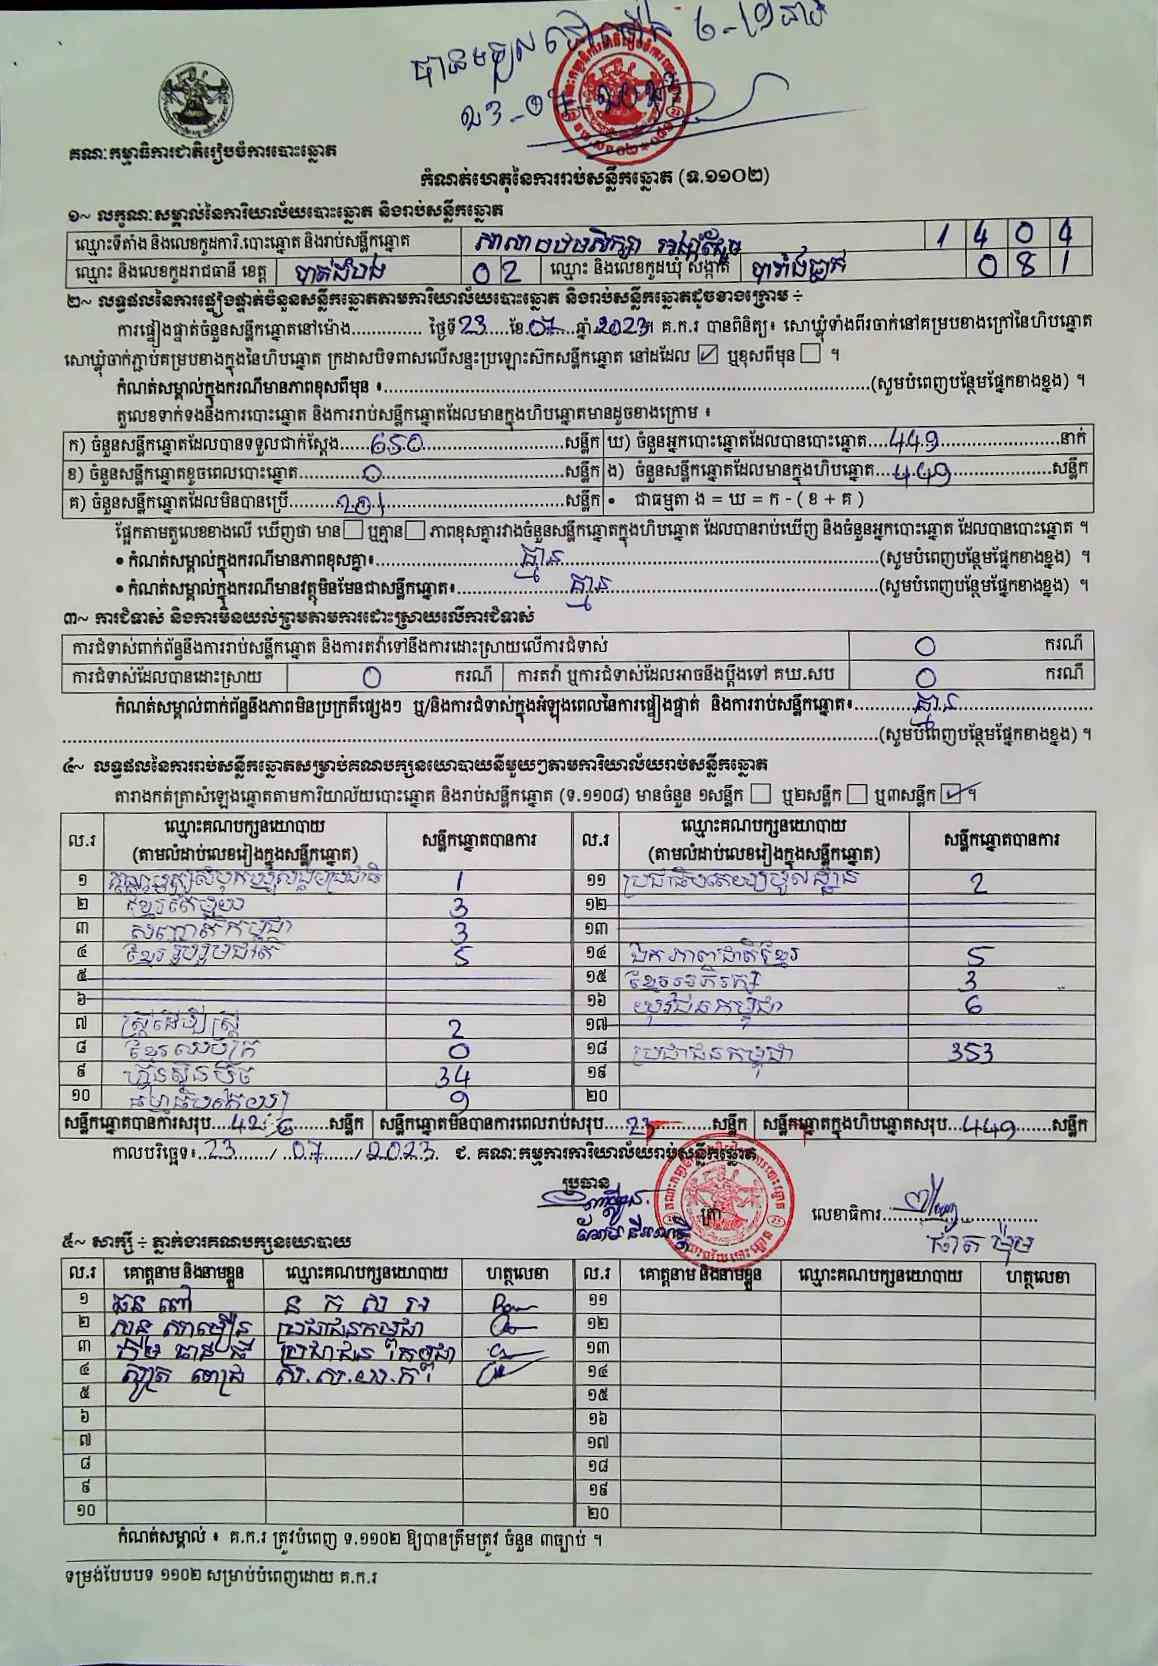 គណៈកម្មាធិការជាតិរៀបចំការបោះឆ្នោត
កំណត់ហេតុនៃការរាប់សន្លឹកឆ្នោត (ទ.១១០២)
១~ លក្ខណៈសម្គាល់នៃការិយាល័យបោះឆ្នោត និងរាប់សន្លឹកឆ្នោត
ឈ្មោះទីតាំង និងលេខកូដការិ.បោះឆ្នោត និងរាប់សន្លឹកឆ្នោត សាលាបឋមសិក្សា 1 4 0 4
ឈ្មោះ និងលេខកូដរាជធានី ខេត្ត បាត់ដំបង 0 2 ឈ្មោះ និងលេខកូដឃុំ សង្កាត់ បារាំងធ្លាក់ 0 8 1
២~ លទ្ធផលនៃការផ្ទៀងផ្ទាត់ចំនួនសន្លឹកឆ្នោតតាមការិយាល័យបោះឆ្នោត និងរាប់សន្លឹកឆ្នោតដូចខាងក្រោម ÷
ការផ្ទៀងផ្ទាត់ចំនួនសន្លឹកឆ្នោតនៅម៉ោង.............. ថ្ងៃទី 23 ខែ 07 ឆ្នាំ 2023។ គ.ក.រ បានពិនិត្យ៖ សោឃ្លុំទាំងពីរចាក់នៅគម្របខាងក្រៅនៃហិបឆ្នោត
សោឃ្លុំចាក់ភ្ជាប់គម្របខាងក្នុងនៃហិបឆ្នោត ក្រដាសបិទពាសលើសន្ទះប្រឡោះស៊កសន្លឹកឆ្នោត នៅដដែល ☑ ឬខុសពីមុន ☐ ។
កំណត់សម្គាល់ក្នុងករណីមានភាពខុសពីមុន ៖............(សូមបំពេញបន្ថែមផ្នែកខាងខ្នង) ។
តួលេខទាក់ទងនឹងការបោះឆ្នោត និងការរាប់សន្លឹកឆ្នោតដែលមានក្នុងហិបឆ្នោតមានដូចខាងក្រោម ៖
ក) ចំនួនសន្លឹកឆ្នោតដែលបានទទួលជាក់ស្តែង......650......សន្លឹក ឃ) ចំនួនអ្នកបោះឆ្នោតដែលបានបោះឆ្នោត....449......នាក់
ខ) ចំនួនសន្លឹកឆ្នោតខូចពេលបោះឆ្នោត......0......សន្លឹក ង) ចំនួនសន្លឹកឆ្នោតដែលមានក្នុងហិបឆ្នោត...449......សន្លឹក
គ) ចំនួនសន្លឹកឆ្នោតដែលមិនបានប្រើ......201......សន្លឹក • ជាធម្មតា ង = ឃ = ក - ( ខ + គ )
ផ្អែកតាមតួលេខខាងលើ ឃើញថា មាន ☐ ឬគ្មាន ☐ ភាពខុសគ្នារវាងចំនួនសន្លឹកឆ្នោតក្នុងហិបឆ្នោត ដែលបានរាប់ឃើញ និងចំនួនអ្នកបោះឆ្នោត ដែលបានបោះឆ្នោត ។
• កំណត់សម្គាល់ក្នុងករណីមានភាពខុសគ្នា៖......គ្មាន......(សូមបំពេញបន្ថែមផ្នែកខាងខ្នង) ។
• កំណត់សម្គាល់ក្នុងករណីមានវត្ថុមិនមែនជាសន្លឹកឆ្នោត៖......គ្មាន......(សូមបំពេញបន្ថែមផ្នែកខាងខ្នង) ។
៣~ ការជំទាស់ និងការមិនយល់ព្រមតាមការដោះស្រាយលើការជំទាស់
ការជំទាស់ពាក់ព័ន្ធនឹងការរាប់សន្លឹកឆ្នោត និងការតវ៉ាទៅនឹងការដោះស្រាយលើការជំទាស់ 0 ករណី
ការជំទាស់ដែលបានដោះស្រាយ 0 ករណី ការតវ៉ា ឬការជំទាស់ដែលអាចនឹងប្តឹងទៅ គឃ.សប 0 ករណី
កំណត់សម្គាល់ពាក់ព័ន្ធនឹងភាពមិនប្រក្រតីផ្សេងៗ ឬ/និងការជំទាស់ក្នុងអំឡុងពេលនៃការផ្ទៀងផ្ទាត់ និងការរាប់សន្លឹកឆ្នោត៖......គ្មាន......
......(សូមបំពេញបន្ថែមផ្នែកខាងខ្នង) ។
៤~ លទ្ធផលនៃការរាប់សន្លឹកឆ្នោតសម្រាប់គណបក្សនយោបាយនីមួយៗតាមការិយាល័យរាប់សន្លឹកឆ្នោត
តារាងកត់ត្រាសំឡេងឆ្នោតតាមការិយាល័យបោះឆ្នោត និងរាប់សន្លឹកឆ្នោត (ទ.១១០៨) មានចំនួន ១សន្លឹក ☐ ឬ២សន្លឹក ☐ ឬ៣សន្លឹក ☑ ។
ល.រ ឈ្មោះគណបក្សនយោបាយ (តាមលំដាប់លេខរៀងក្នុងសន្លឹកឆ្នោត) សន្លឹកឆ្នោតបានការ ល.រ ឈ្មោះគណបក្សនយោបាយ (តាមលំដាប់លេខរៀងក្នុងសន្លឹកឆ្នោត) សន្លឹកឆ្នោតបានការ
១ 1 ១១ ប្រជាធិបតេយ្យមូលដ្ឋាន 2
២ ខ្មែរតែមួយ 3 ១២
៣ 3 ១៣
៤ ខ្មែររួបរួមជាតិ 5 ១៤ ឯកភាពជាតិខ្មែរ 5
៥ ១៥ ខ្មែរអភិរក្ស 3
៦ ១៦ យុវជនកម្ពុជា 6
៧ ស្ត្រីដើម្បីស្ត្រី 2 ១៧
៨ ខ្មែរឈប់ក្រ 0 ១៨ ប្រជាជនកម្ពុជា 353
៩ ហ៊្វុនស៊ិនប៉ិច 34 ១៩
១០ 9 ២០
សន្លឹកឆ្នោតបានការសរុប...426......សន្លឹក សន្លឹកឆ្នោតមិនបានការពេលរាប់សរុប...23......សន្លឹក សន្លឹកឆ្នោតក្នុងហិបឆ្នោតសរុប...449......សន្លឹក
កាលបរិច្ឆេទ៖..23..../..07..../.2023. ជ. គណៈកម្មការការិយាល័យរាប់សន្លឹកឆ្នោត
ប្រធាន
ត្រា
លេខាធិការ......
ផាត ម៉ុម
៥~ សាក្សី ÷ ភ្នាក់ងារគណបក្សនយោបាយ
ល.រ គោត្តនាម និងនាមខ្លួន ឈ្មោះគណបក្សនយោបាយ ហត្ថលេខា ល.រ គោត្តនាម និងនាមខ្លួន ឈ្មោះគណបក្សនយោបាយ ហត្ថលេខា
១ ផន ពៅ ១១
២ ប្រជាជនកម្ពុជា ១២
៣ ប្រជាជនកម្ពុជា ១៣
៤ ១៤
៥ ១៥
៦ ១៦
៧ ១៧
៨ ១៨
៩ ១៩
១០ ២០
កំណត់សម្គាល់ ៖ គ.ក.រ ត្រូវបំពេញ ទ.១១០២ ឱ្យបានត្រឹមត្រូវ ចំនួន ៣ច្បាប់ ។
ទម្រង់បែបបទ ១១០២ សម្រាប់បំពេញដោយ គ.ក.រ